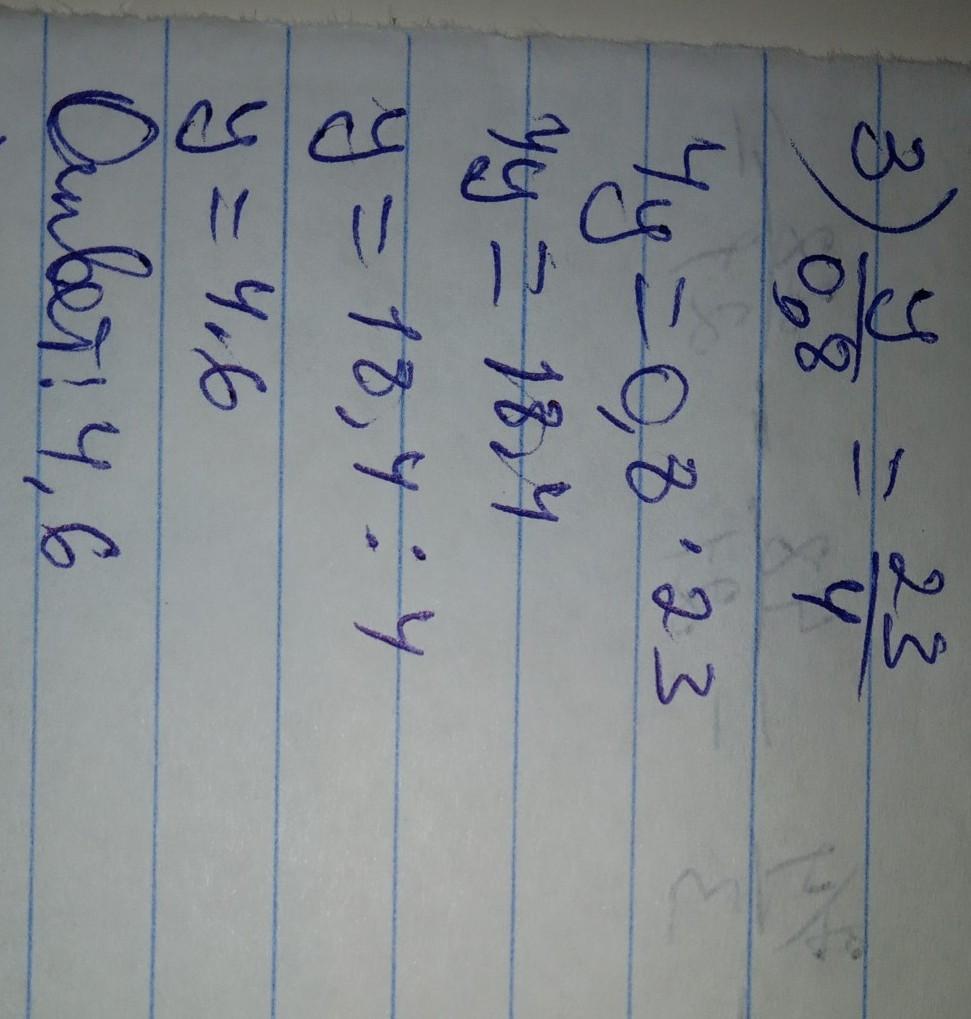 3) y/0,8 = 23/4
4y = 0,8 · 23
4y = 18,4
y = 18,4 : 4
y = 4,6
Ответ: 4,6